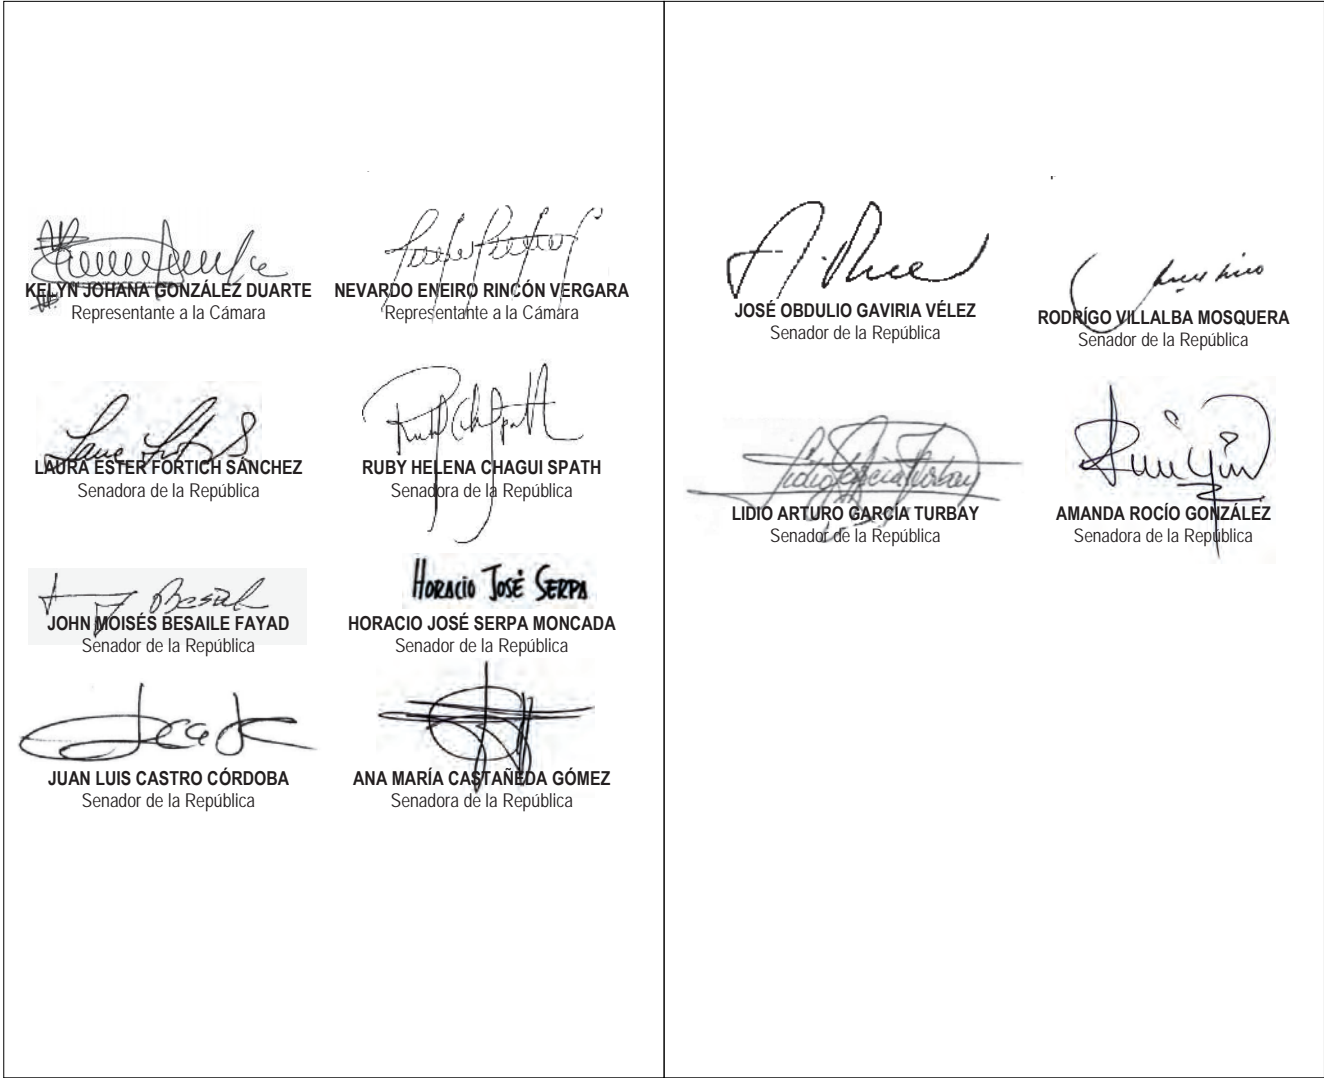 KELYN JOHANA GONZÁLEZ DUARTE
Representante a la Cámara
NEVARDO ENEIRO RINCÓN VERGARA
Representante a la Cámara
LAURA ESTER FORTICH SÁNCHEZ
Senadora de la República
RUBY HELENA CHAGUI SPATH
Senadora de la República
JOHN MOISÉS BESAILE FAYAD
Senador de la República
HORACIO JOSÉ SERPA
HORACIO JOSÉ SERPA MONCADA
Senador de la República
JUAN LUIS CASTRO CÓRDOBA
Senador de la República
ANA MARÍA CASTAÑEDA GÓMEZ
Senadora de la República
JOSÉ OBDULIO GAVIRIA VÉLEZ
Senador de la República
RODRÍGO VILLALBA MOSQUERA
Senador de la República
Lidio García Turbay
LIDIO ARTURO GARCÍA TURBAY
Senador de la República
AMANDA ROCÍO GONZÁLEZ
Senadora de la República